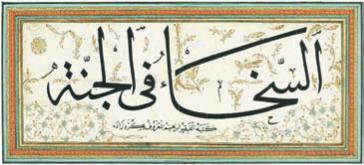 السخاء في الجنة
كتبه الفقير